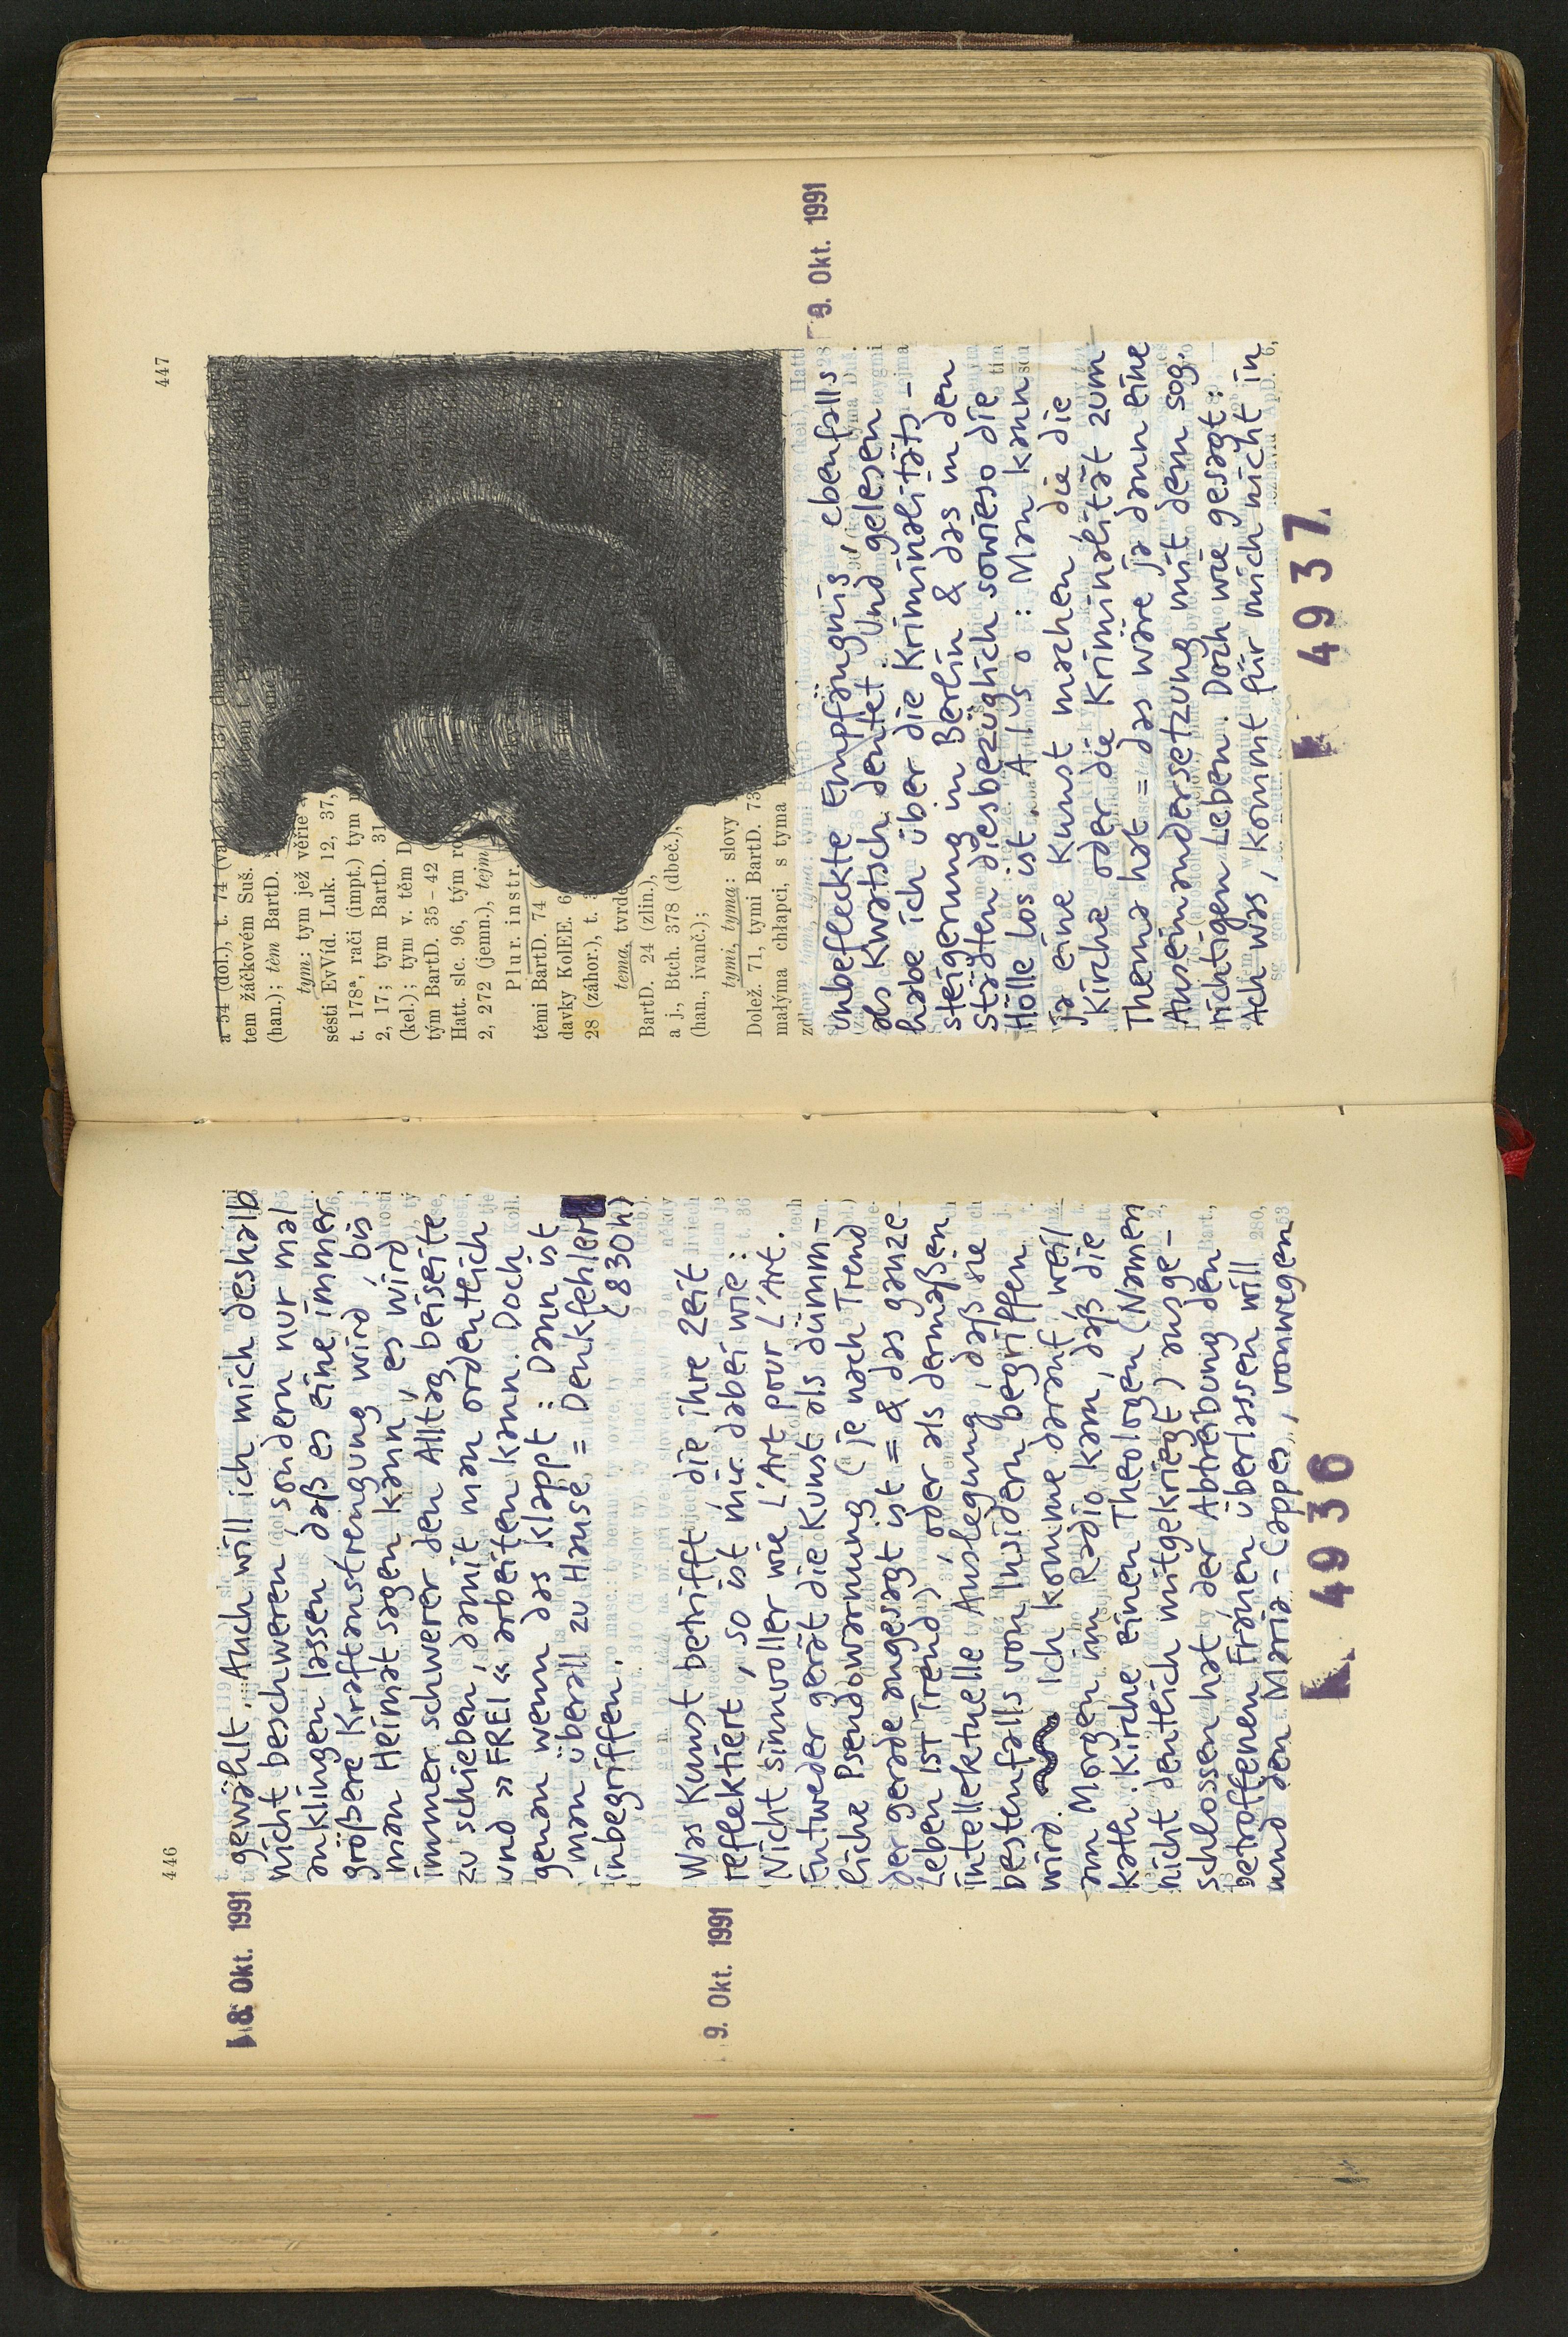 446
8. Okt. 1991
gewählt. Auch will ich mich deshalb
nicht beschweren, sondern nur mal
anklingen lassen, daß es eine immer
größere Kraftanstrengung wird, bis
man Heimat sagen kann, es wird
immer schwerer den Alltag beiseite
zu schieben, damit man ordentlich
und »FREI« arbeiten kann. Doch
genau wenn das klappt: Dann ist
man überall zu Hause = Denkfehler
inbegriffen. (830h)
9. Okt. 1991
Was Kunst betrifft, die ihre Zeit
reflektiert, so ist mir dabei wie:
Nicht sinnvoller wie L'Art pour L'Art.
Entweder gerät die Kunst als dümm-
liche Pseudowarnung (je nach Trend
der gerade angesagt ist = & das ganze
Leben IST Trend), oder als dermaßen
intellektuelle Auslegung, daß sie
bestenfalls von Insidern begriffen
wird. Ich komme darauf, weil
am Morgen im Radio kam, daß die
kath. Kirche einen Theologen (Namen
nicht deutlich mitgekriegt) ausge-
schlossen hat, der Abtreibung den
betroffenen Frauen überlassen will
und den Maria-Cappes, vonwegen
4936
447
a 54 (dol.), t. 74 (val.)
tem žáčkovém Suš.
(han.); tèm BartD.
tym: tym jež věřie
sésti EvVíd. Luk. 12, 37,
t. 178ª, rači (impt.) tym
2, 17; tym BartD. 31
(kel.); tym v. těm D
tým BartD. 35-42
Hatt. slc. 96, tým ro
2, 272 (jemn.), tejm
Plur. instr.
těmi BartD. 74
davky KolEE. 6
28 (záhor.), t.
tema, tvrdé
BartD. 24 (zlin.),
a j., Btch. 378 (dbeč.),
(han., ivanč.);
tymi, tyma: slovy
Dolež. 71, tymi BartD. 73
małýma chłapci, s tyma
9. Okt. 1991
unbefleckte Empfängnis, ebenfalls
als Kwatsch deutet. Und gelesen
habe ich über die Kriminalitäts-
steigerung in Berlin & das in den
Städten diesbezüglich sowieso die
Hölle los ist. Also: Man kann
ja eine Kunst machen die die
Kirche oder die Kriminalität zum
Thema hat = das wäre ja dann eine
Auseinandersetzung mit dem sog.
richtigen Leben. Doch wie gesagt:
Ach was, kommt für mich nicht in
4937